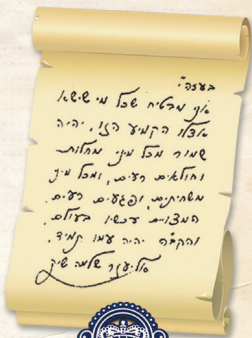 בעזהי
אני מבטיח שכל מי שישא
אצלו הקמיע הזו, יהיה
שמור מכל מיני מחלות
וחולאים רעים, ומכל מיני
משחיתים, ופגעים רעים
המצויים עכשיו בעולם,
והקב"ה יהיה עמו תמיד.
אליעזר שלמה שיק